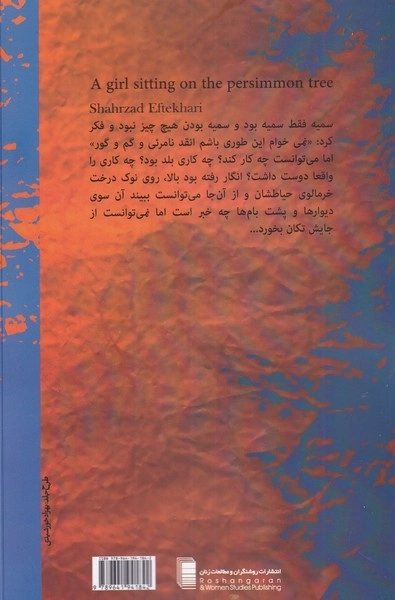 A girl sitting on the persimmon tree
Shahrzad Eftekhari
سمیه فقط سمیه بود و سمیه بودن هیچ چیز نبود و فکر
کرد: «نمی خوام این طوری باشم انقد نامرئی و گم و گور»
اما می‌توانست چه کار کند؟ چه کاری بلد بود؟ چه کاری را
واقعا دوست داشت؟ انگار رفته بود بالا، روی نوک درخت
خرمالوی حیاطشان و از آن‌جا می‌توانست ببیند آن سوی
دیوارها و پشت بام‌ها چه خبر است اما نمی‌توانست از
جایش تکان بخورد...
طرح جلد: بهزاد خورشیدی
ISBN 978-964-194-184-2
9 789641 941842
انتشارات روشنگران و مطالعات زنان
Roshangaran
& Women Studies Publishing